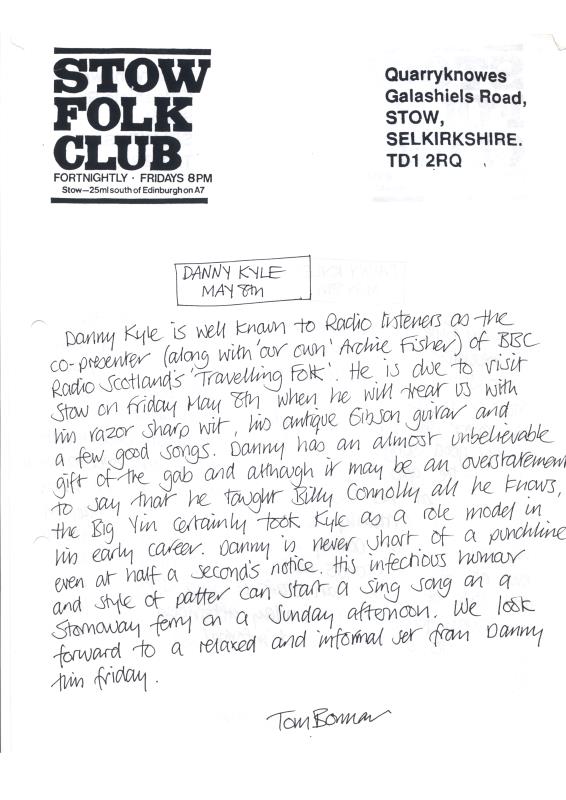 STOW
FOLK
CLUB
FORTNIGHTLY · FRIDAYS 8PM
Stow—25ml south of Edinburgh on A7
Quarryknowes
Galashiels Road,
STOW,
SELKIRKSHIRE.
TD1 2RQ
DANNY KYLE
MAY 8th
Danny Kyle is well known to Radio listeners as the
co-presenter (along with 'our own' Archie Fisher) of BBC
Radio Scotland's 'Travelling Folk'. He is due to visit
Stow on Friday May 8th when he will treat us with
his razor sharp wit, his antique Gibson guitar and
a few good songs. Danny has an almost unbelievable
gift of the gab and although it may be an overstatement
to say that he taught Billy Connolly all he knows,
the Big Yin certainly took Kyle as a role model in
his early career. Danny is never short of a punchline
even at half a second's notice. His infectious humour
and style of patter can start a sing song on a
Stornaway ferry on a Sunday afternoon. We look
forward to a relaxed and informal set from Danny
this friday.
Tom